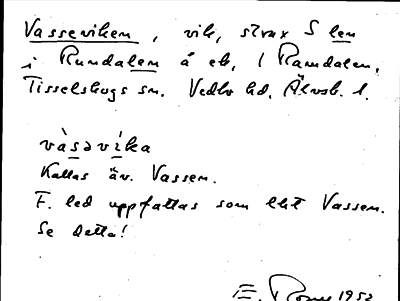 Vasseviken, vik, strax S len
i Rundalen å ek, / Ramdalen,
Tisselskogs sn. Vedbo hd. Älvsb. l.
vàsəvíka
Kallas äv. Vassen.
F. led uppfattas som lht Vassen.
Se detta!
E. 1952